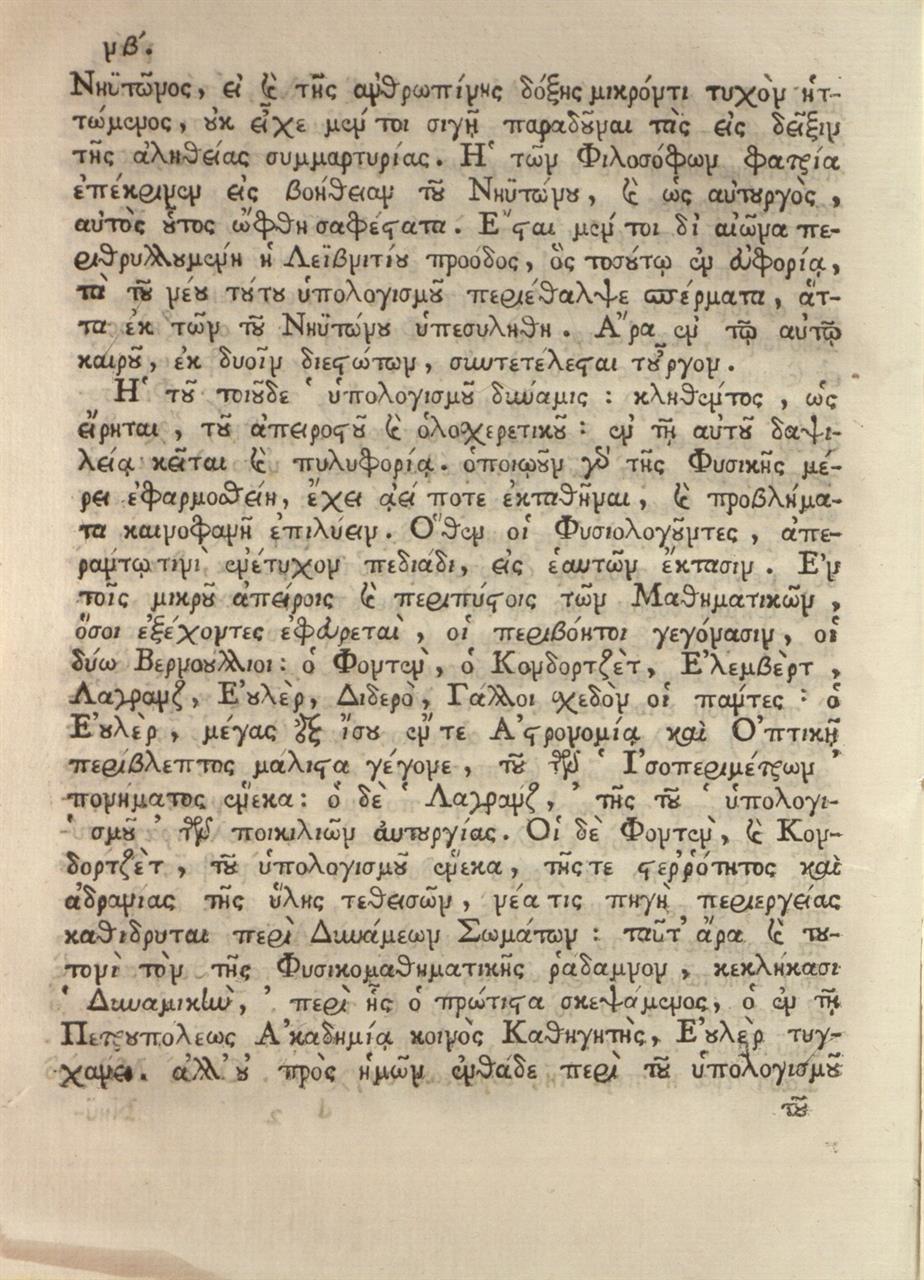 μβ´.
Νηϋτῶνος, εἰ ϗ τῆς ἀνθρωπίνης δόξης μικρόντι τυχὸν ἡτ-
τώμενος, ȣκ εἶχε μέν τοι σιγῇ παραδȣ͂ναι τὰς εἰς δεῖξιν
τῆς ἀληθείας συμμαρτυρίας. Ἡ τῶν Φιλοσόφων φατρία
ἐπέκρινεν εἰς βοήθειαν τȣ͂ Νηϋτώνȣ, ϗ ὡς αὐτȣργὸς,
αὐτὸς ȣ̔͂τος ὤφθη σαφέϛατα. Ἔϛαι μέν τοι δι' αἰῶνα πε-
ριθρυλλȣμένη ἡ Λεϊβνιτίȣ πρόοδος, ὃς τοσȣ́τῳ ἐν εὐφορίᾳ,
τὰ τȣ͂ νέȣ τȣ́τȣ ὑπολογισμȣ͂ περιέθαλψε σπέρματα, ἅτ-
τα ἐκ τῶν τȣ͂ Νηϋτώνȣ ὑπεσυλήθη. Ἄρα ἐν τῷ αὐτῷ
καιρȣ͂, ἐκ δυοῖν διεϛώτων, συντετέλεϛαι τȣ̓͂ργον.
Ἡ τȣ͂ τοιȣ͂δε ‘ ὑπολογισμȣ͂ δύναμις : κληθέντος, ὡς
εἴρηται, τȣ͂ ἀπειροϛȣ͂ ϗ ὁλοχερετικȣ͂ : ἐν τῇ αὐτȣ͂ δαψι-
λείᾳ κεῖται ϗ πυλυφορίᾳ. ὁποιῳȣ͂ν γὰρ τῆς Φυσικῆς μέ-
ρει ἐφαρμοσθείη, ἔχει ἀεί ποτε ἐκταθῆναι, ϗ προβλήμα-
τα καινοφανῆ ἐπιλύειν. Ὅθεν οἱ Φυσιολογȣ͂ντες, ἀπε-
ράντῳ τινὶ ἐνέτυχον πεδιάδι, εἰς ἑαυτῶν ἔκτασιν. Ἐν
τοῖς μικρȣ͂ ἀπείροις ϗ περιπύϛοις τῶν Μαθηματικῶν,
ὅσοι ἐξέχοντες ἐφεύρεται, οἱ περιβόητοι γεγόνασιν, οἱ
δύω Βερνουλλιοι : ὁ Φοντεν, ὁ Κονδορτζὲτ, Ἐλεμβὲρτ,
Λαγρανζ, Ἐȣλὲρ, Διδερὸ, Γάλλοι σχεδὸν οἱ πάντες : ὁ
Ἐȣλὲρ, μέγας ἐξ ἴσȣ ἔν τε Ἀϛρονομίᾳ καὶ Ὀπτικῇ
περίβλεπτος μάλιϛα γέγονε, τȣ͂ τῶν ‘ Ἰσοπεριμέτρων ’
πονήματος ἕνεκα : ὁ δὲ ‘ Λαγρανζ, ’ τῆς τȣ͂ ‘ ὑπολογι-
‘ σμȣ͂ ’ τῶν ποικιλιῶν αὐτȣργίας. Οἱ δὲ Φοντεν, ϗ Κον-
δορτζὲτ, τȣ͂ ὑπολογισμȣ͂ ἕνεκα, τῆς τε ϛεῤῥότητος καὶ
ἀδρανίας τῆς ὕλης τεθεισῶν, νέα τις πηγὴ περιεργείας
καθίδρυται περὶ Δυνάμεων Σωμάτων : ταῦτ' ἄρα ϗ τȣ-
τονὶ τὸν τῆς Φυσικομαθηματικῆς ῥάδαμνον, κεκλήκασι
‘ Δυναμικὴν, ’ περὶ ἧς ὁ πρώτιϛα σκεψάμενος, ὁ ἐν τῇ
Πετρȣπόλεως Ἀκαδημίᾳ κοινὸς Καθηγητὴς, Ἐȣλὲρ τυγ-
χάνει. ἀλλ' ȣ̓ πρὸς ἡμῶν ἐνθάδε περὶ τȣ͂ ὑπολογισμȣ͂
τȣ͂